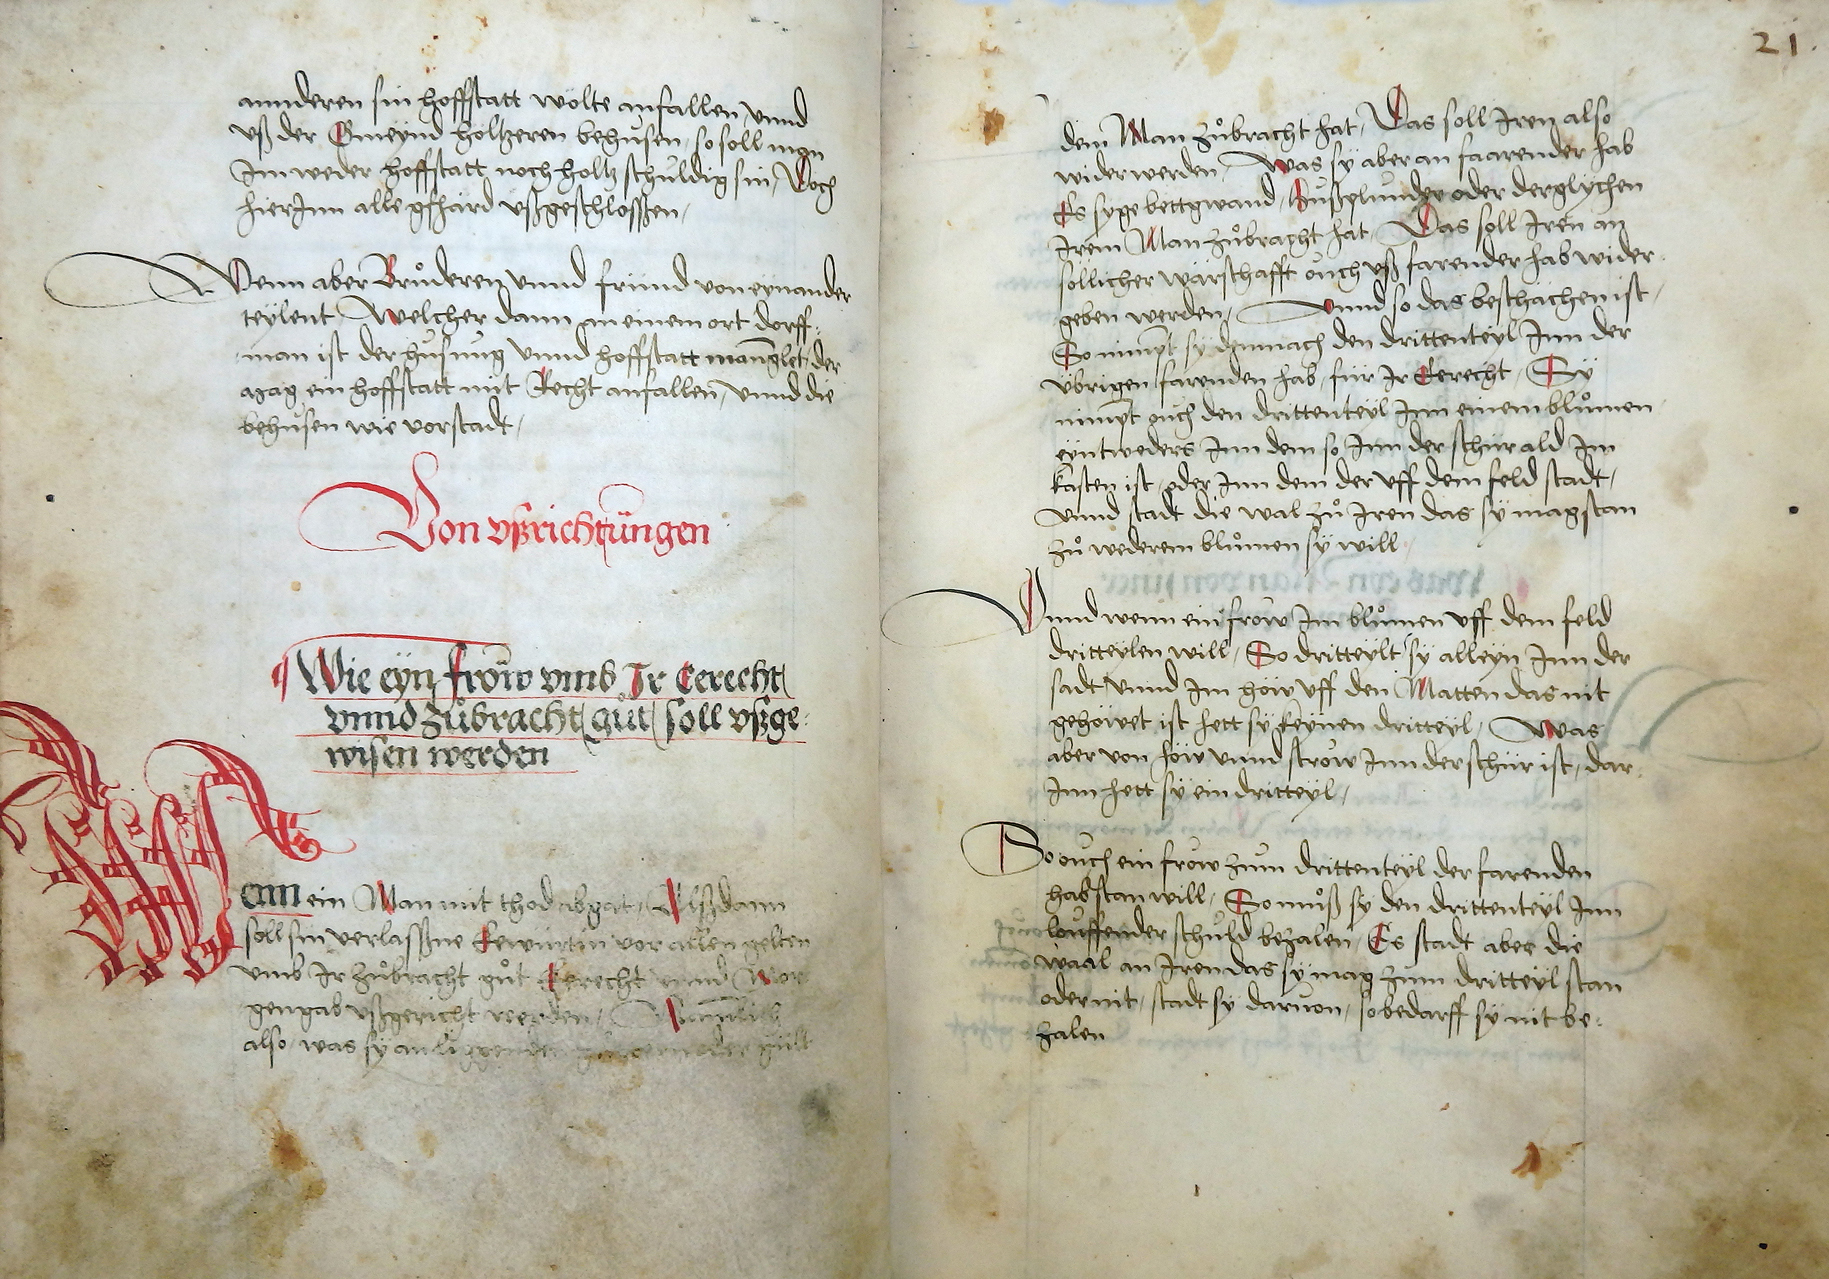 annderen sin hoffstatt wölte anfallen, vnnd
vß der Gmeynd höltzeren behusen, so soll man
Im weder hoffstatt noch holtz schuldig sin, Doch
hierInn alle gfhard vßgeschlossen,
Wenn aber Brüderen vnnd fründ von eynander
teylent, Welcher dann an einem ort dorff-
man ist der husung vnnd hoffstatt manglet, der
mag ein hoffstatt mit Recht anfallen, vnnd die
behusen wie vorstadt,
Von vßrichtungen
Wie eyn frow vmb Ir Eerecht
vnnd zůbracht gůt soll vßge-
wisen werden
Wenn ein Man mit thod abgat, Alßdann
soll sin verlaßne Eewürtin vor allen gelten
vmb Ir zůbracht gůt Eerecht vnnd Mor
gengab vßgericht werden, Namlich
also, was sy an liggenden oder gült
21.
dem Man zůbracht hat, Das soll Iren also
wider werden, Was sy aber an faarender hab
Es syge bettgwand, Hußplunder oder derglychen
Irem Man zůbracht hat, Das soll Iren an
sollicher wärschafft ouch vß farender hab wider-
geben werden, Vnnd so das beschächen ist,
So nimpt sy demnach den drittenteyl Inn der
übrigen farenden hab, für Ir Eerecht, Sy
nimpt ouch den drittenteyl Inn einem blůmen
eyntweders Inn dem so Inn der schür ald Im
kasten ist, oder Inn dem der vff dem feld stadt,
vnnd stadt die wal zů Iren das sy mag stan
zů wederem blůmen sy will
Vnnd wenn ein frow Im blůmen vff dem feld
dritteylen will, So dritteylt sy alleyn Inn der
sadt vnnd Im höw vff den Matten das nit
gehöwet ist hett sy keynen dritteyl, Was
aber von höw vnnd strow Inn der schür ist, dar-
Inn hett sy ein dritteyl,
So ouch ein frow zum drittenteyl der farenden
hab stan will, So můß sy den drittenteyl Inn
louffender schuld bezalen, Es stadt aber die
waal an Iren das sy mag zum dritteyl stan
oder nit, stadt sy daruon, so bedarff sy nit be-
zalen